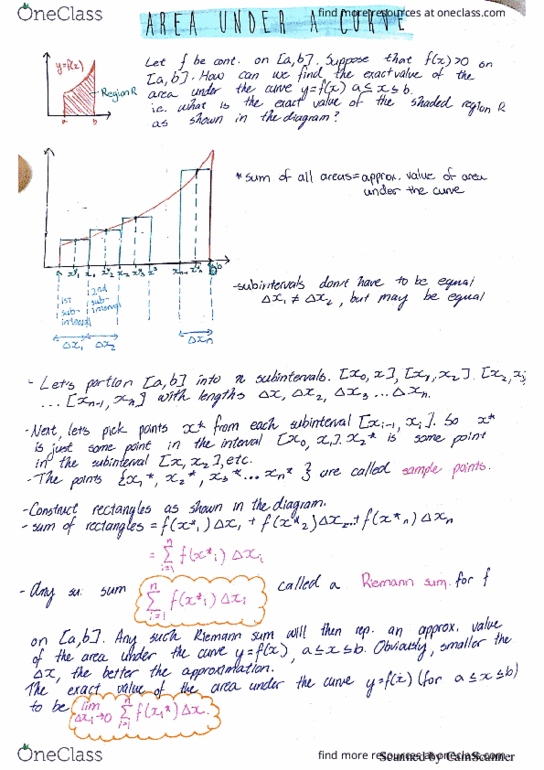 OneClass
find more resources at oneclass.com
AREA UNDER A CURVE
y=f(x)
Region R
a b
Let f be cont. on [a,b]. Suppose that f(x)>0 on
[a,b]. How can we find the exact value of the
area under the curve y=f(x) a≤x≤b.
i.e. what is the exact value of the shaded region R
as shown in the diagram?
* sum of all areas=approx. value of area
under the curve
1st sub-interval
2nd sub-interval
Δx₁ Δx₂ Δxn
-subintervals don't have to be equal
Δx₁ ≠ Δx₂, but may be equal
- Let's portion [a,b] into n subintervals. [x₀, x₁], [x₁, x₂], [x₂, x₃
... [xn-1, xn] with lengths Δx, Δx₂, Δx₃ ... Δxn.
-Next, lets pick points x* from each subinterval [xi-1, xi]. So x*
is just some point in the interval [x₀, x₁]. x₂* is some point
in the subinterval [x, x₂], etc.
-The points {x₁*, x₂*, x₃*... xn*} are called sample points.
-Construct rectangles as shown in the diagram.
-sum of rectangles = f(x*₁)Δx₁ + f(x*₂)Δx₂...+f(x*n)Δxn
= Σ f(x*i) Δxi
n
i=1
- Any su. sum Σ f(x*i) Δxi called a Riemann sum for f
n
i=1
on [a,b]. Any such Riemann sum will then rep. an approx. value
of the area under the curve y=f(x), a≤x≤b. Obviously, smaller the
Δx, the better the approximation.
The exact value of the area under the curve y=f(x) (for a≤x≤b)
to be lim Δxi→0 Σ f(xi*) Δx.
n
i=1
OneClass
find more resources at oneclass.com
Scanned by CamScanner